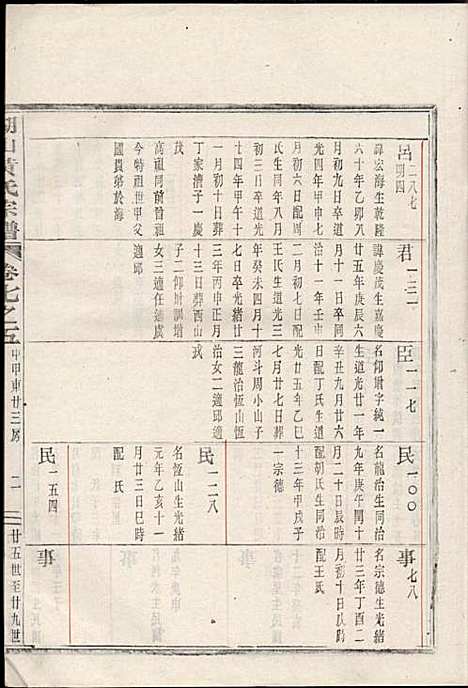 呂一二八七
明四
諱宏海生乾隆
六十年乙卯八
月初九日卒道
光四年甲申七
月初六日配周
初三日卒道光
廿四年甲午十
一月初五日葬
丁家漕子一慶
茂
高祖同前曾祖
今特祖世甲父
國賓弟於海
君一三一
諱慶茂生嘉慶
廿五年庚辰六
月十一日卒同
治十一年壬申
二月初七日配
王氏生道光三
年癸未四月十
七日卒光緒廿
二年丙申正月
十三日葬西山
子二仰璔訓增
女三適任適虞
適邱
臣一一七
名仰璔字純一
生道光廿一年
辛丑九月廿六
日配丁氏生道
光廿五年乙巳
七月廿七日葬
河斗周小山子
三龍治恆山恆
治女二適邱適
戎
民一〇〇
名龍治生同治
九年庚午閏十
月二十日辰時
配胡氏生同治
十三年甲戌子
一宗德
民一二八
名恆山生光緒
元年乙亥十一
月廿三日巳時
配 氏
民一五四
事七八
名宗德生光緒
廿三年丁酉二
月初十日以時
配王氏
事
事
黃氏宗譜
卷七之五
中甲東廿三房
二
廿五世至廿九世